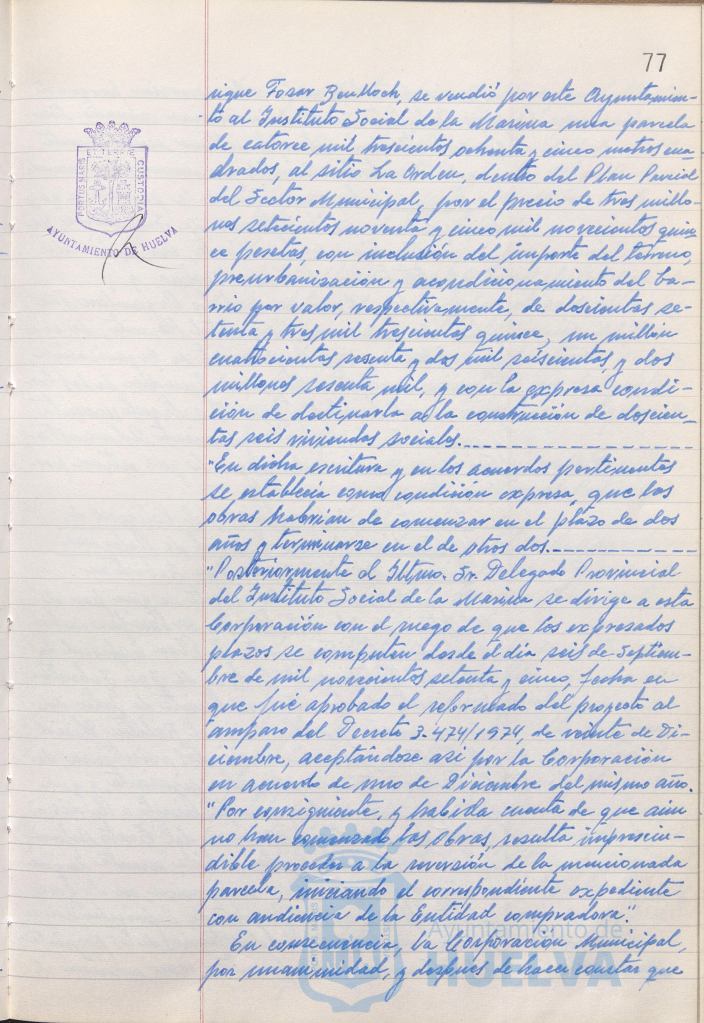 77
rique Fosar Benlloch, se vendió por este Ayuntamien-
to al Instituto Social de la Marina una parcela
de catorce mil trescientos ochenta y cinco metros cua-
drados, al sitio La Orden, dentro del Plan Parcial
del Sector Municipal, por el precio de tres millo-
nes setecientos noventa y cinco mil novecientos quin-
ce pesetas, con inclusión del importe del terreno,
preurbanización y acondicionamiento del ba-
rrio por valor, respectivamente, de doscientas se-
tenta y tres mil trescientas quince, un millón
cuatrocientas sesenta y dos mil seiscientas, y dos
millones sesenta mil, y con la expresa condi-
ción de destinarla a la construcción de doscien-
tas seis viviendas sociales.
"En dicha escritura y en los acuerdos pertinentes
se establecía como condición expresa, que las
obras habrían de comenzar en el plazo de dos
años y terminarse en el de otros dos.
"Posteriormente el Iltmo. Sr. Delegado Provincial
del Instituto Social de la Marina se dirige a esta
Corporación con el ruego de que los expresados
plazos se computen desde el día seis de Septiem-
bre de mil novecientos setenta y cinco, fecha en
que fué aprobado el reformado del proyecto al
amparo del Decreto 3.474/1974, de veinte de Di-
ciembre, aceptándose así por la Corporación
en acuerdo de uno de Diciembre del mismo año.
"Por consiguiente, y habida cuenta de que aún
no han comenzado las obras, resulta imprescin-
dible proceder a la reversión de la mencionada
parcela, iniciando el correspondiente expediente
con audiencia de la Entidad compradora".
En consecuencia, la Corporación Municipal,
por unanimidad, y después de hacer constar que
PORTUS MARIS ET TERRE CUSTODIA
AYUNTAMIENTO DE HUELVA
Ayuntamiento de
HUELVA